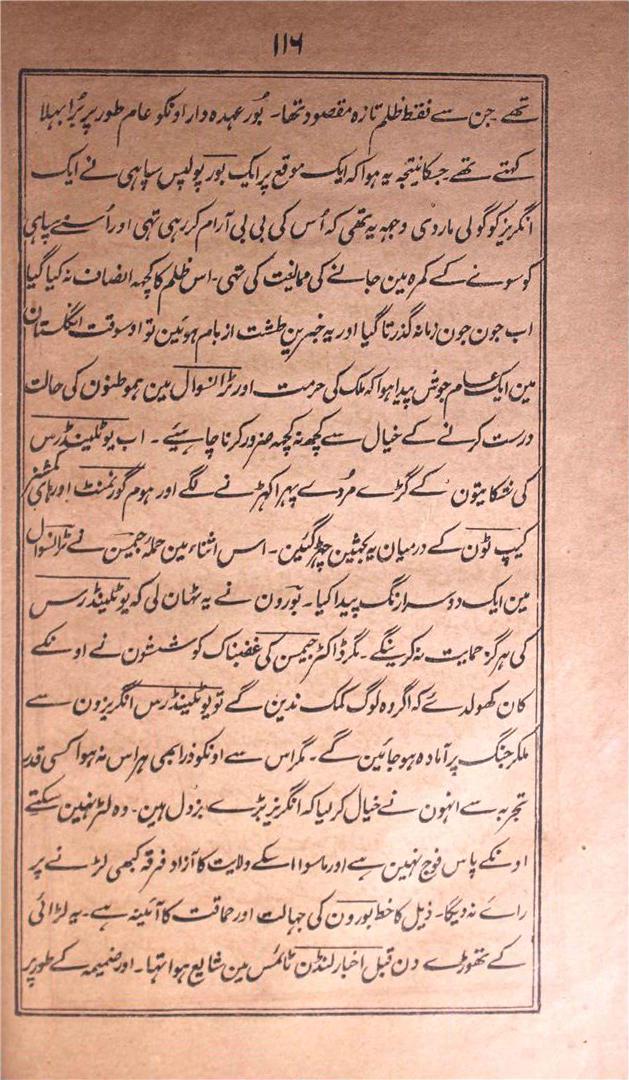 ۱۱۶
تھے جن سے فقط ظلم تازہ مقصود تھا۔ بور عہدہ دار اونکو عام طور پر بُرا بھلا
کہتے تھے۔ جسکا نتیجہ یہ ہوا کہ ایک موقع پر ایک بور پولیس سپاہی نے ایک
انگریز کو گولی مار دی وجہہ یہ تھی کہ اُس کی بی بی آرام کر رہی تہی اور اُسنے سپاہی
کو سونے کے کمرہ مین جانے کی ممانعت کی تہی۔ اس ظلم کا کچہہ انصاف نہ کیا گیا
اب جون جون زمانہ گذرتا گیا اور یہ خبرین طشت از بام ہوئین تو اوسوقت انگلستان
مین ایک عام جوش پیدا ہوا کہ ملک کی حرمت اور ٹرانسوال مین ہموطنون کی حالت
درست کرنے کے خیال سے کچھ نہ کچہہ ضرور کرنا چاہیئے ۔ اب یوٹلینڈرس
کی شکایتون کے گڑے مُردے پہر اکہڑنے لگے اور ہوم گورنمنٹ اور ہائی کمشنر
کیپ ٹون کے درمیان یہ بحثین چھڑ گئین۔ اس اثناء مین حملۂ جیمسن نے ٹرانسوال
مین ایک دوسرا رنگ پیدا کیا۔ بورون نے یہ ٹہان لی کہ یوٹلینڈرس
کی ہرگز حمایت نہ کرینگے۔ مگر ڈاکٹر جیمسن کی غضبناک کوششون نے اونکے
کان کھولدئے کہ اگر وہ لوگ کمک ندین گے تو یوٹلینڈرس انگریزون سے
ملکر جنگ پر آمادہ ہو جائین گے۔ مگر اس سے اونکو ذرا بھی ہراس نہ ہوا کسی قدر
تجربہ سے انہون نے خیال کر لیا کہ انگریز بڑے بزدل ہین۔ وہ لڑ نہین سکتے
اونکے پاس فوج نہین ہے اور ماسوا اسکے ولایت کا آزاد فرقہ کبھی لڑنے پر
راے ندیگا۔ ذیل کا خط بورون کی جہالت اور حماقت کا آئینہ ہے۔ یہ لڑائی
کے تھوڑے دن قبل اخبار لنڈن ٹائمس مین شایع ہوا تہا۔ اور ضمیمہ کے طور پر